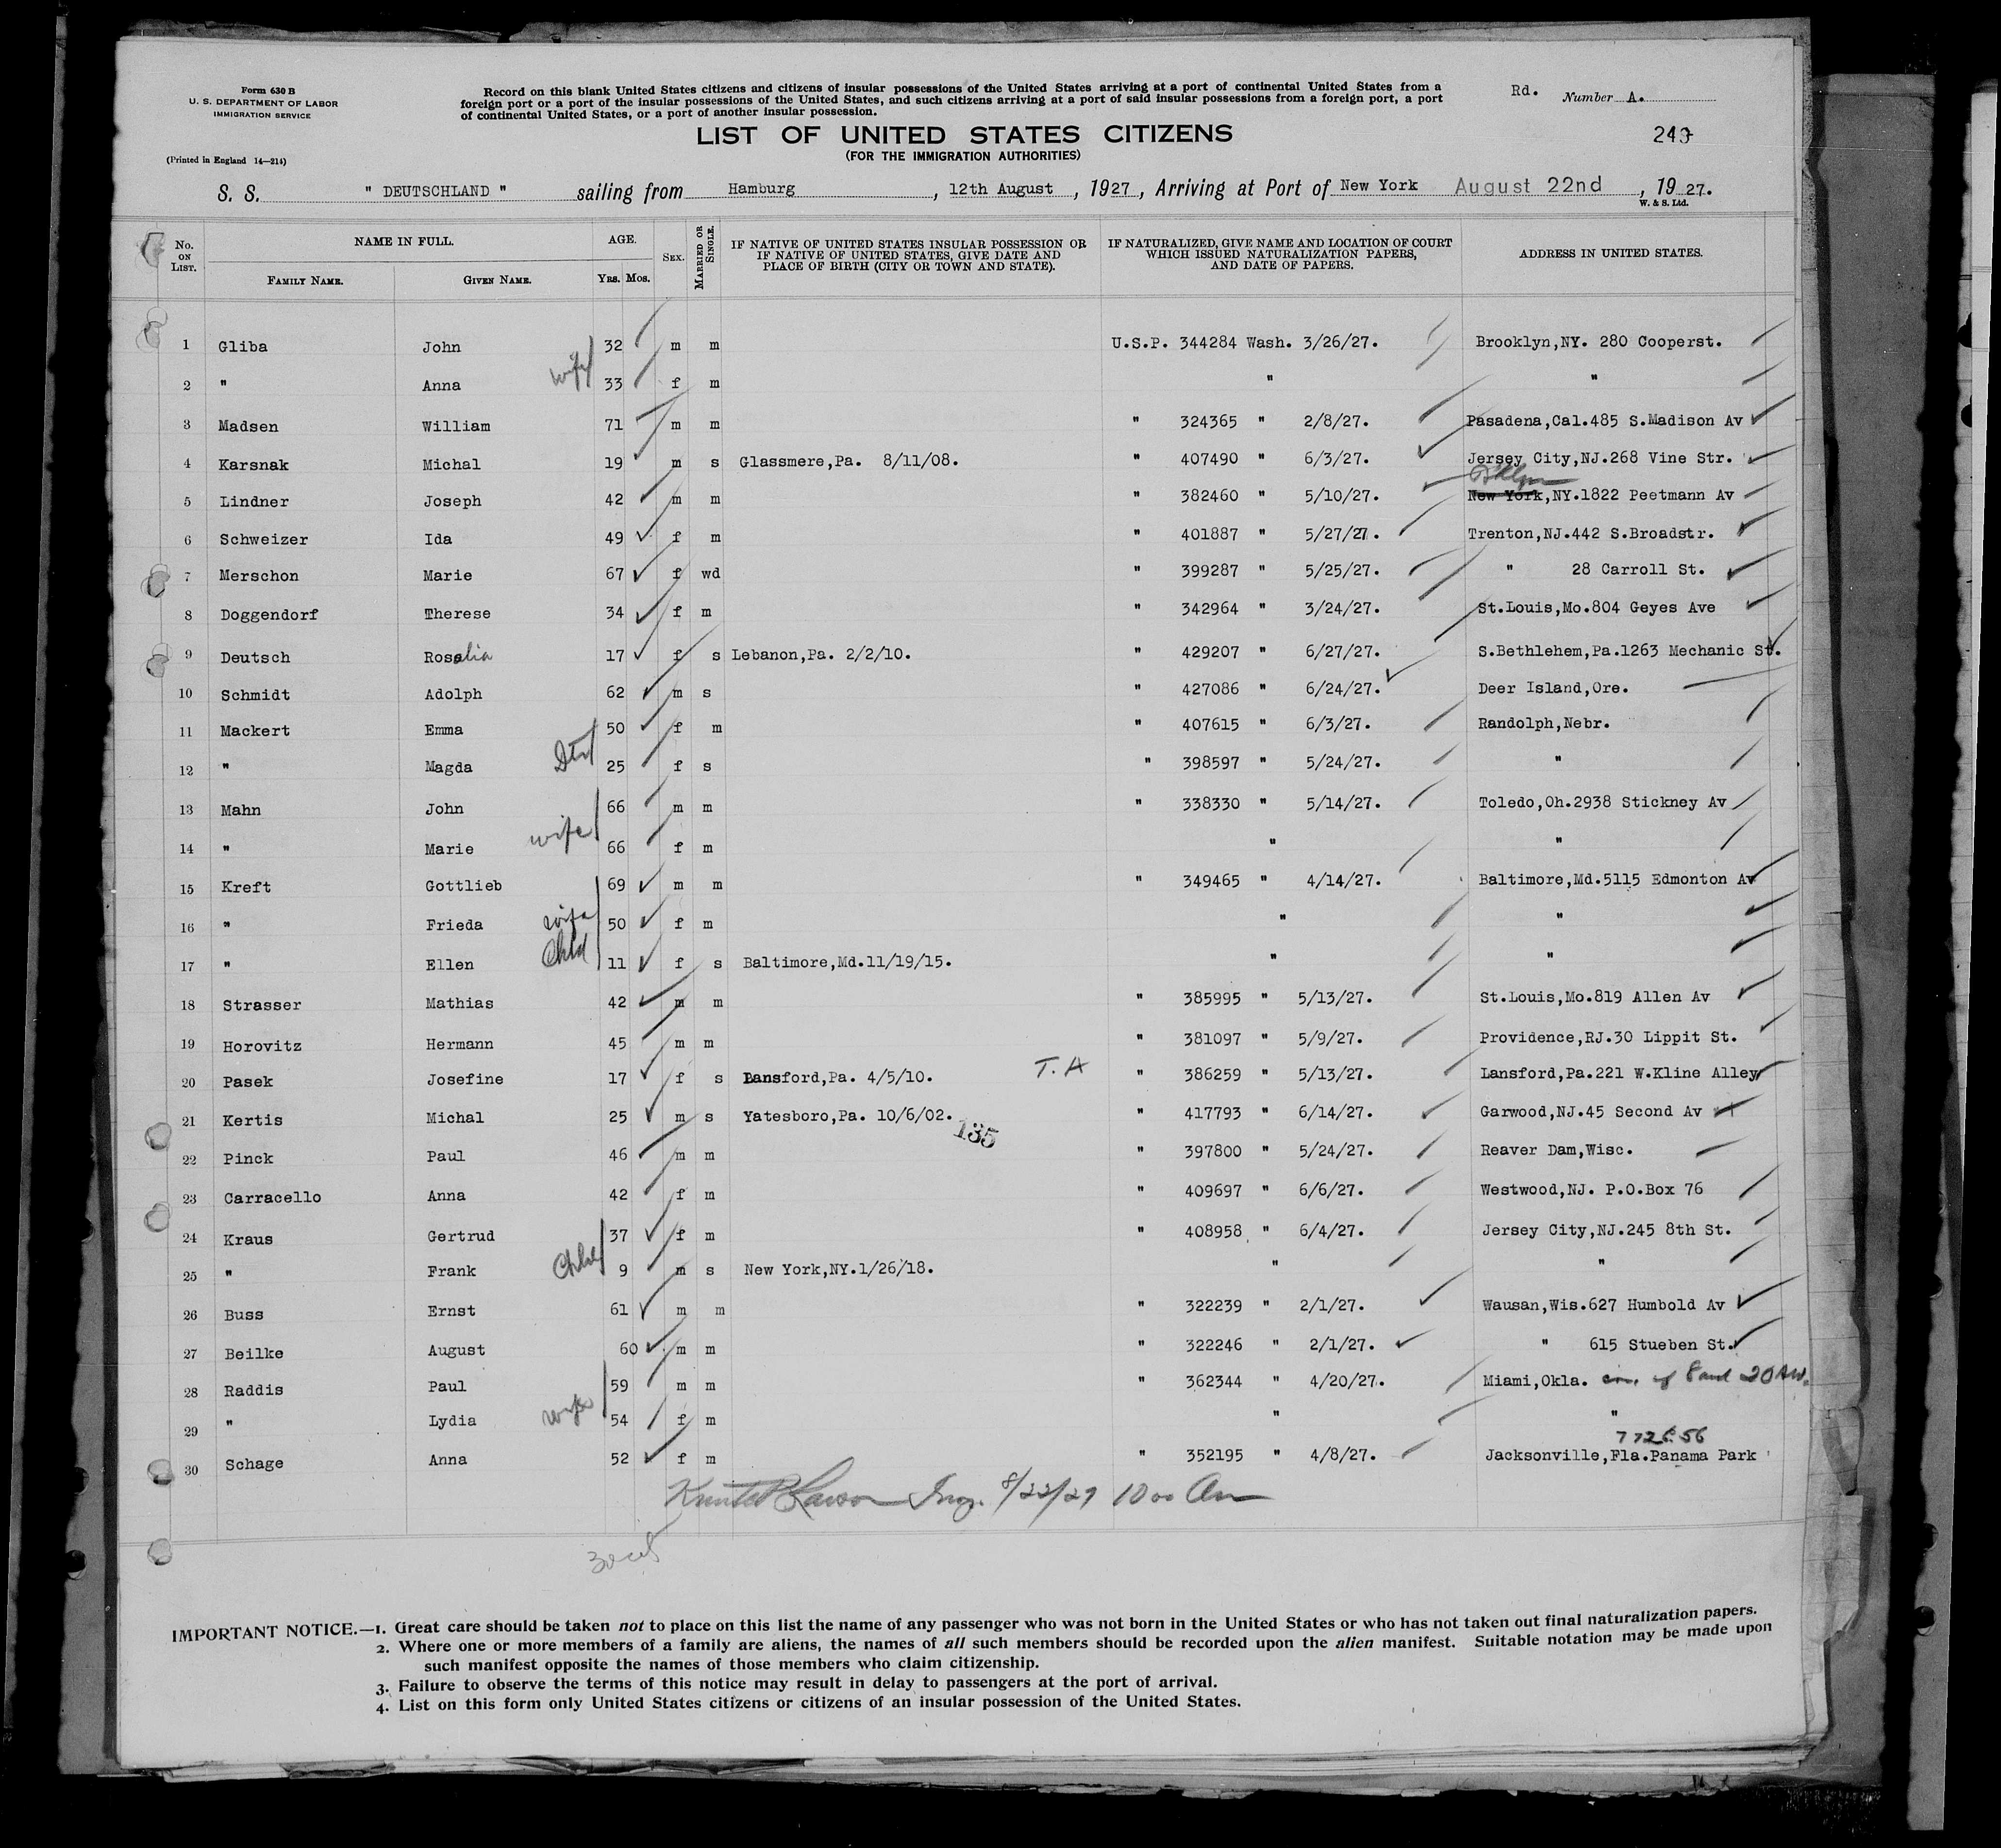 Form 630 B
U. S. DEPARTMENT OF LABOR
IMMIGRATION SERVICE
(Printed in England 14—214)
Record on this blank United States citizens and citizens of insular possessions of the United States arriving at a port of continental United States from a
foreign port or a port of the insular possessions of the United States, and such citizens arriving at a port of said insular possessions from a foreign port, a port
of continental United States, or a port of another insular possession.
Rd. Number A.
LIST OF UNITED STATES CITIZENS
(FOR THE IMMIGRATION AUTHORITIES)
S. S. " DEUTSCHLAND " sailing from Hamburg, 12th August, 1927, Arriving at Port of New York August 22nd, 1927.
W. & S. Ltd.
No. ON LIST. NAME IN FULL. FAMILY NAME. GIVEN NAME. AGE. YRS. MOS. SEX. MARRIED OR SINGLE. IF NATIVE OF UNITED STATES INSULAR POSSESSION OR IF NATIVE OF UNITED STATES, GIVE DATE AND PLACE OF BIRTH (CITY OR TOWN AND STATE). IF NATURALIZED, GIVE NAME AND LOCATION OF COURT WHICH ISSUED NATURALIZATION PAPERS, AND DATE OF PAPERS. ADDRESS IN UNITED STATES.
1 Gliba John 32 m m U.S.P. 344284 Wash. 3/26/27. Brooklyn,NY. 280 Cooperst.
2 " Anna wife 33 f m " "
3 Madsen William 71 m m " 324365 " 2/8/27. Pasadena,Cal.485 S.Madison Av
4 Karsnak Michal 19 m s Glassmere,Pa. 8/11/08. " 407490 " 6/3/27. Jersey City,NJ.268 Vine Str.
5 Lindner Joseph 42 m m " 382460 " 5/10/27. Bklyn New York,NY.1822 Peetmann Av
6 Schweizer Ida 49 f m " 401887 " 5/27/27. Trenton,NJ.442 S.Broadstr.
7 Merschon Marie 67 f wd " 399287 " 5/25/27. " 28 Carroll St.
8 Doggendorf Therese 34 f m " 342964 " 3/24/27. St.Louis,Mo.804 Geyes Ave
9 Deutsch Rosalia 17 f s Lebanon,Pa. 2/2/10. " 429207 " 6/27/27. S.Bethlehem,Pa.1263 Mechanic St.
10 Schmidt Adolph 62 m s " 427086 " 6/24/27. Deer Island,Ore.
11 Mackert Emma 50 f m " 407615 " 6/3/27. Randolph,Nebr.
12 " Magda Dtr 25 f s " 398597 " 5/24/27. "
13 Mahn John 66 m m " 338330 " 5/14/27. Toledo,Oh.2938 Stickney Av
14 " Marie wife 66 f m " "
15 Kreft Gottlieb 69 m m " 349465 " 4/14/27. Baltimore,Md.5115 Edmonton Av
16 " Frieda wife 50 f m " "
17 " Ellen Chld 11 f s Baltimore,Md.11/19/15. " "
18 Strasser Mathias 42 m m " 385995 " 5/13/27. St.Louis,Mo.819 Allen Av
19 Horovitz Hermann 45 m m " 381097 " 5/9/27. Providence,RJ.30 Lippit St.
20 Pasek Josefine 17 f s Lansford,Pa. 4/5/10. T. A " 386259 " 5/13/27. Lansford,Pa.221 W.Kline Alley
21 Kertis Michal 25 m s Yatesboro,Pa. 10/6/02. 135 " 417793 " 6/14/27. Garwood,NJ.45 Second Av
22 Pinck Paul 46 m m " 397800 " 5/24/27. Reaver Dam,Wisc.
23 Carracello Anna 42 f m " 409697 " 6/6/27. Westwood,NJ. P.O.Box 76
24 Kraus Gertrud 37 f m " 408958 " 6/4/27. Jersey City,NJ.245 8th St.
25 " Frank Chld 9 m s New York,NY.1/26/18. " "
26 Buss Ernst 61 m m " 322239 " 2/1/27. Wausan,Wis.627 Humbold Av
27 Beilke August 60 m m " 322246 " 2/1/27. " 615 Stueben St.
28 Raddis Paul 59 m m " 362344 " 4/20/27. Miami,Okla.
29 " Lydia wife 54 f m " "
30 Schage Anna 52 f m " 352195 " 4/8/27. Jacksonville,Fla.Panama Park
8/22/27 10 00 Am
IMPORTANT NOTICE.—1. Great care should be taken not to place on this list the name of any passenger who was not born in the United States or who has not taken out final naturalization papers.
2. Where one or more members of a family are aliens, the names of all such members should be recorded upon the alien manifest. Suitable notation may be made upon
such manifest opposite the names of those members who claim citizenship.
3. Failure to observe the terms of this notice may result in delay to passengers at the port of arrival.
4. List on this form only United States citizens or citizens of an insular possession of the United States.